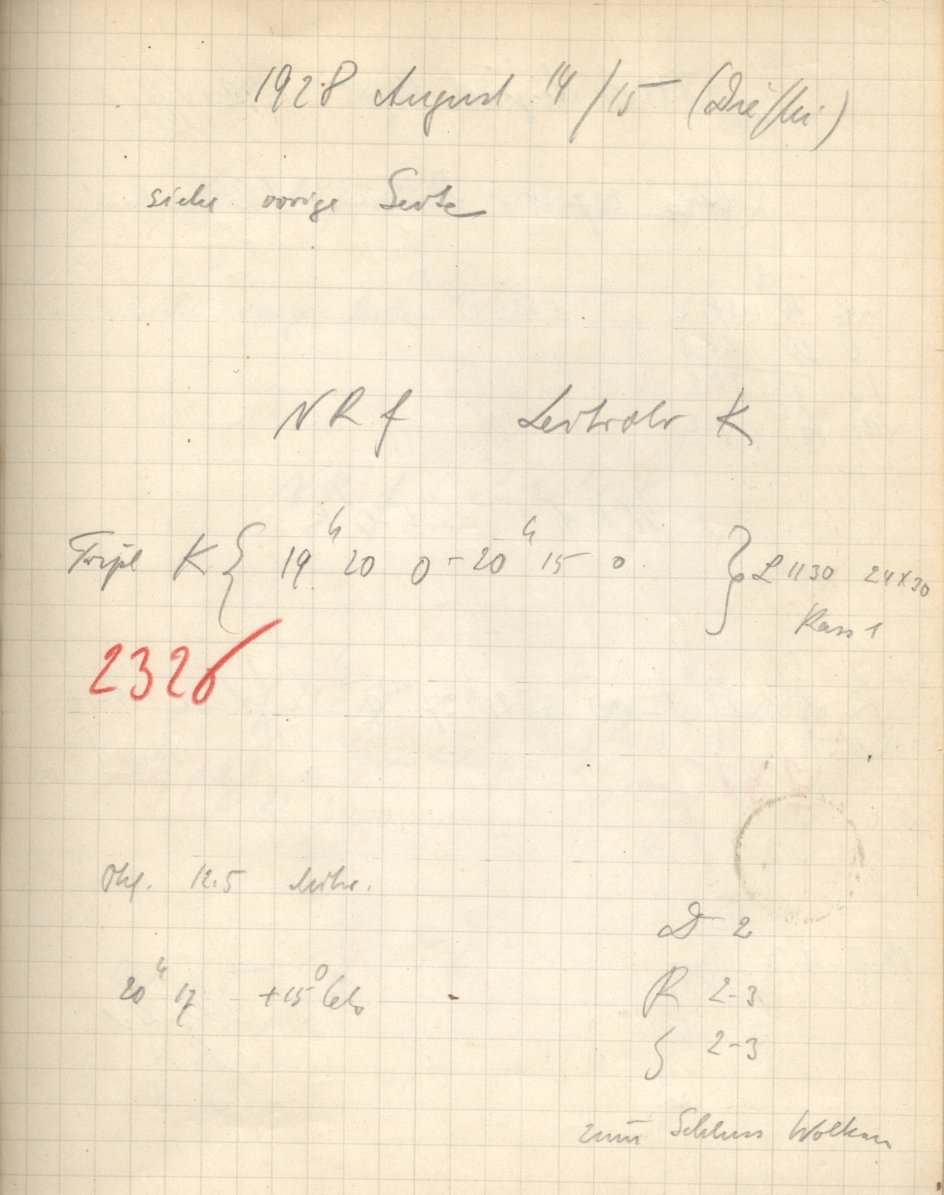 1928 August 14/15 (Die/Mi)
siehe vorige Seite
NRf Leitrohr K
Tripl K { 19ʰ 20 0 - 20ʰ 15 0 } L 1130 24x30
Kass 1
2326
12.5
20ʰ 17 +15° Cels
D 2
R 2-3
2-3
zum Schluss Wolken